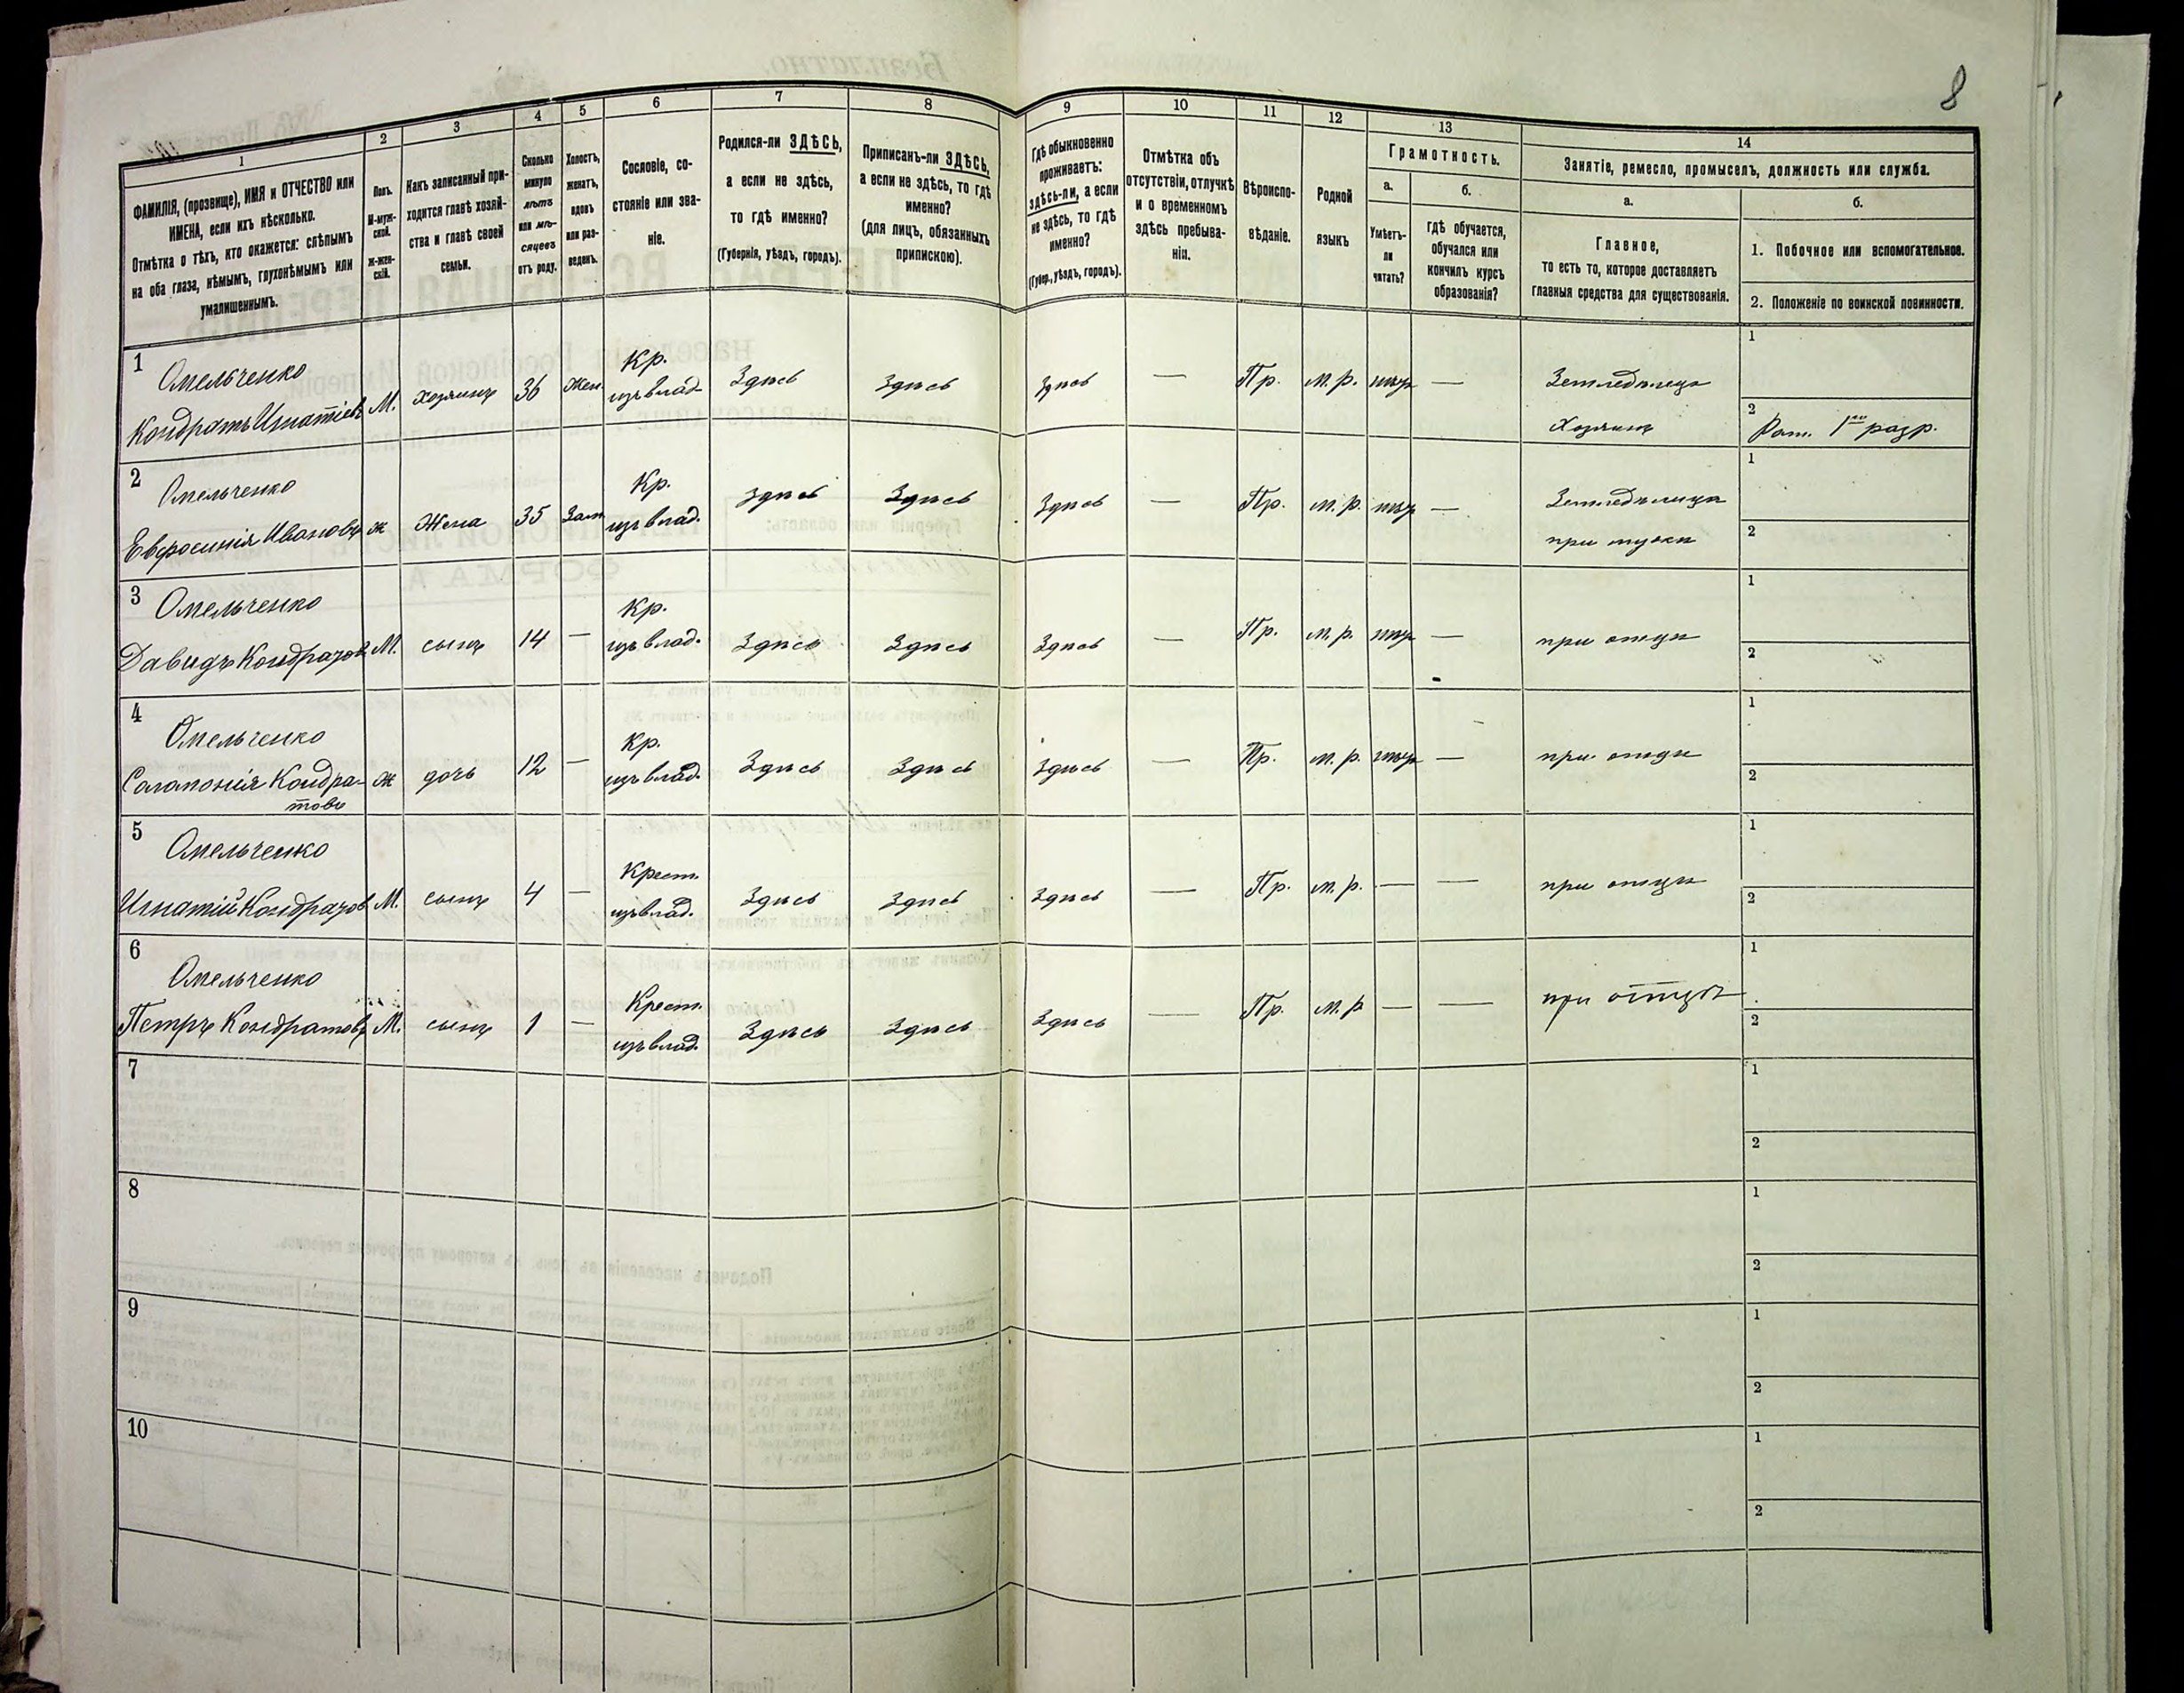 8
1
2
3
4
5
6
7
8
9
10
11
12
13
14
ФАМИЛІЯ, (прозвище), ИМЯ и ОТЧЕСТВО или
ИМЕНА, если ихъ нѣсколько.
Отмѣтка о тѣхъ, кто окажется: слѣпымъ
на оба глаза, нѣмымъ, глухонѣмымъ или
умалишеннымъ.
Полъ.
М-муж-
ской.
Ж-жен-
скій.
Какъ записанный при-
ходится главѣ хозяй-
ства и главѣ своей
семьи.
Сколько
минуло
лѣтъ
или мѣ-
сяцевъ
отъ роду.
Холостъ,
женатъ,
вдовъ
или раз-
веденъ.
Сословіе, со-
стояніе или зва-
ніе.
Родился-ли ЗДѢСЬ,
а если не здѣсь,
то гдѣ именно?
(Губернія, уѣздъ, городъ).
Приписанъ-ли ЗДѢСЬ,
а если не здѣсь, то гдѣ
именно?
(для лицъ, обязанныхъ
припискою).
Гдѣ обыкновенно
проживаетъ:
здѣсь-ли, а если
не здѣсь, то гдѣ
именно?
(Губер., уѣздъ, городъ).
Отмѣтка объ
отсутствіи, отлучкѣ
и о временномъ
здѣсь пребыва-
ніи.
Вѣроиспо-
вѣданіе.
Родной
языкъ
Грамотность.
а.
Умѣетъ-
ли
читать?
б.
гдѣ обучается,
обучался или
кончилъ курсъ
образованія?
Занятіе, ремесло, промыселъ, должность или служба.
а.
Главное,
то есть то, которое доставляетъ
главныя средства для существованія.
б.
1. Побочное или вспомогательное.
2. Положеніе по воинской повинности.
1 Омельченко
Кондратъ Игнатіевъ М. хозяинъ 36 Жен. Кр. изъ влад. Здѣсь Здѣсь Здѣсь — Пр. м. р. нѣтъ — Земледѣлецъ
Хозяинъ
1
2 Рат. 1го разр.
2 Омельченко
Евфросинія Иванова ж Жена 35 Зам. Кр. изъ влад. Здѣсь Здѣсь Здѣсь — Пр. м. р. нѣтъ — Земледѣлица
при мужѣ
1
2
3 Омельченко
Давидъ Кондратов М. сынъ 14 — Кр. изъ влад. Здѣсь Здѣсь Здѣсь — Пр. м. р. нѣтъ — при отцѣ
1
2
4 Омельченко
Соломонія Кондра-
това ж дочь 12 — Кр. изъ влад. Здѣсь Здѣсь Здѣсь — Пр. м. р. нѣтъ — при отцѣ
1
2
5 Омельченко
Игнатій Кондратов М. сынъ 4 — Крест. изъ влад. Здѣсь Здѣсь Здѣсь — Пр. м. р. — — при отцѣ
1
2
6 Омельченко
Петръ Кондратовъ М. сынъ 1 — Крест. изъ влад. Здѣсь Здѣсь Здѣсь — Пр. м. р — — при отцѣ
1
2
7
1
2
8
1
2
9
1
2
10
1
2